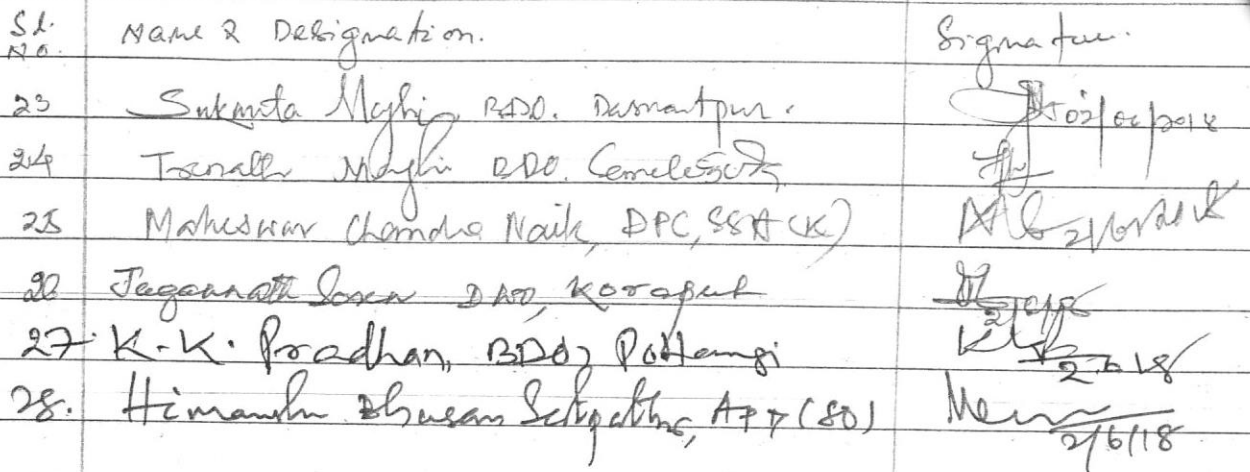 Sl. No. Name & Designation. Signature.
23 Sukmita Majhi, BDO. Dasmantpur. 02/06/2018
24 Trinath Majhi BDO.
25 Maheswar Chandra Naik, DPC, SSA (K)
26 Jagannath Soren DAO, Koraput
27. K.K. Pradhan, BDO, Pottangi 2.6.18
28. Himanshu Bhusan Satpathy, (SO) 2/6/18